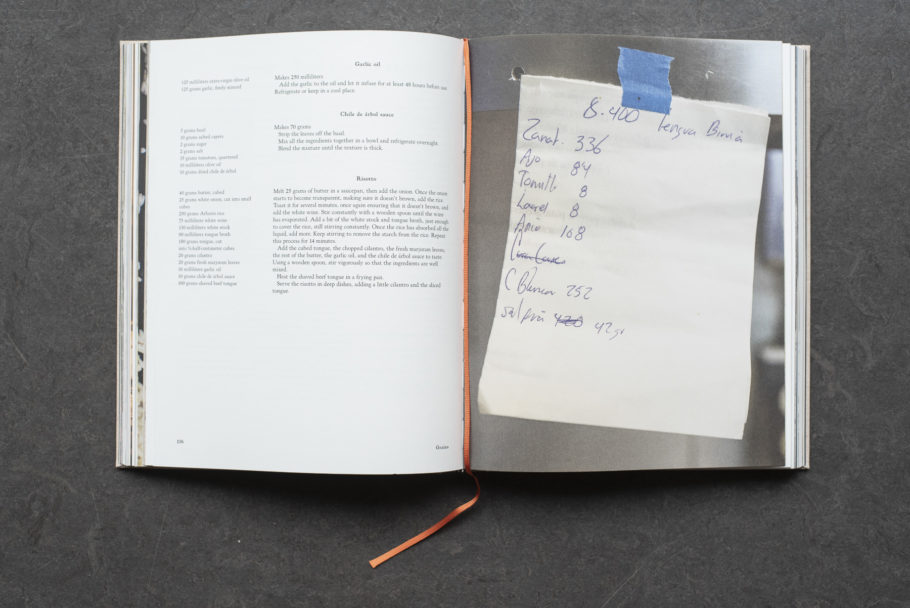 Garlic oil
125 milliliters extra-virgin olive oil
125 grams garlic, finely minced
Makes 250 milliliters
Add the garlic to the oil and let it infuse for at least 48 hours before use.
Refrigerate or keep in a cool place.
Chile de árbol sauce
5 grams basil
10 grams salted capers
2 grams sugar
2 grams salt
35 grams tomatoes, quartered
10 milliliters olive oil
10 grams dried chile de árbol
Makes 70 grams
Strip the leaves off the basil.
Mix all the ingredients together in a bowl and refrigerate overnight.
Blend the mixture until the texture is thick.
Risotto
45 grams butter, cubed
25 grams white onion, cut into small
cubes
250 grams Arborio rice
75 milliliters white wine
150 milliliters white stock
80 milliliters tongue broth
180 grams tongue, cut
into cubes
20 grams cilantro
20 grams fresh marjoram leaves
30 milliliters garlic oil
10 grams chile de árbol sauce
100 grams shaved beef tongue
Melt 25 grams of butter in a saucepan, then add the onion. Once the onion
starts to become transparent, making sure it doesn't brown, add the rice.
Toast it for several minutes, once again ensuring that it doesn't brown, and
add the white wine. Stir constantly with a wooden spoon until the wine
has evaporated. Add a bit of the white stock and tongue broth, just enough
to cover the rice, still stirring constantly. Once the rice has absorbed all the
liquid, add more. Keep stirring to remove the starch from the rice. Repeat
this process for 14 minutes.
Add the cubed tongue, the chopped cilantro, the fresh marjoram leaves,
the rest of the butter, the garlic oil, and the chile de árbol sauce to taste.
Using a wooden spoon, stir vigorously so that the ingredients are well
mixed.
Heat the shaved beef tongue in a frying pan.
Serve the risotto in deep dishes, adding a little cilantro and the sliced
tongue.
136
Grains
8.400 Lengua
Zanah. 336
Ajo 84
Tomillo 8
Laurel 8
Apio 168
C Blanca 252
sal fina 420 42 gr